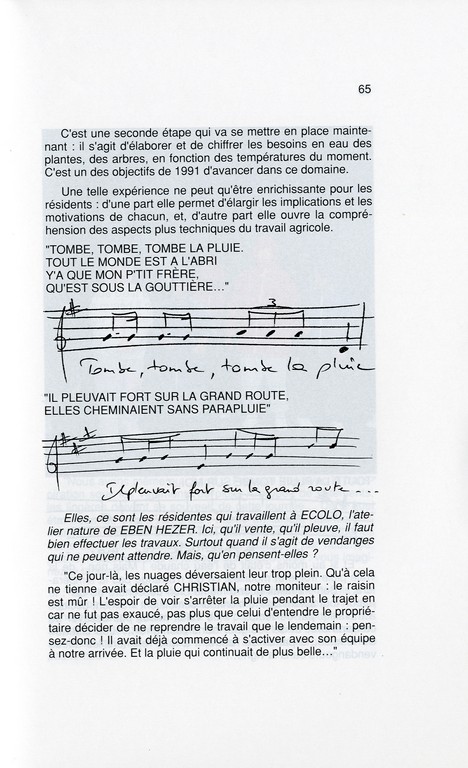 65
C'est une seconde étape qui va se mettre en place mainte-
nant : il s'agit d'élaborer et de chiffrer les besoins en eau des
plantes, des arbres, en fonction des températures du moment.
C'est un des objectifs de 1991 d'avancer dans ce domaine.
Une telle expérience ne peut qu'être enrichissante pour les
résidents : d'une part elle permet d'élargir les implications et les
motivations de chacun, et, d'autre part elle ouvre la compré-
hension des aspects plus techniques du travail agricole.
"TOMBE, TOMBE, TOMBE LA PLUIE.
TOUT LE MONDE EST A L'ABRI
Y'A QUE MON P'TIT FRÈRE,
QU'EST SOUS LA GOUTTIÈRE..."
3
Tombe, tombe, tombe la pluie
"IL PLEUVAIT FORT SUR LA GRAND ROUTE,
ELLES CHEMINAIENT SANS PARAPLUIE"
Il pleuvait fort sur la grand route ...
Elles, ce sont les résidentes qui travaillent à ECOLO, l'ate-
lier nature de EBEN HEZER. Ici, qu'il vente, qu'il pleuve, il faut
bien effectuer les travaux. Surtout quand il s'agit de vendanges
qui ne peuvent attendre. Mais, qu'en pensent-elles ?
"Ce jour-là, les nuages déversaient leur trop plein. Qu'à cela
ne tienne avait déclaré CHRISTIAN, notre moniteur : le raisin
est mûr ! L'espoir de voir s'arrêter la pluie pendant le trajet en
car ne fut pas exaucé, pas plus que celui d'entendre le proprié-
taire décider de ne reprendre le travail que le lendemain : pen-
sez-donc ! Il avait déjà commencé à s'activer avec son équipe
à notre arrivée. Et la pluie qui continuait de plus belle..."